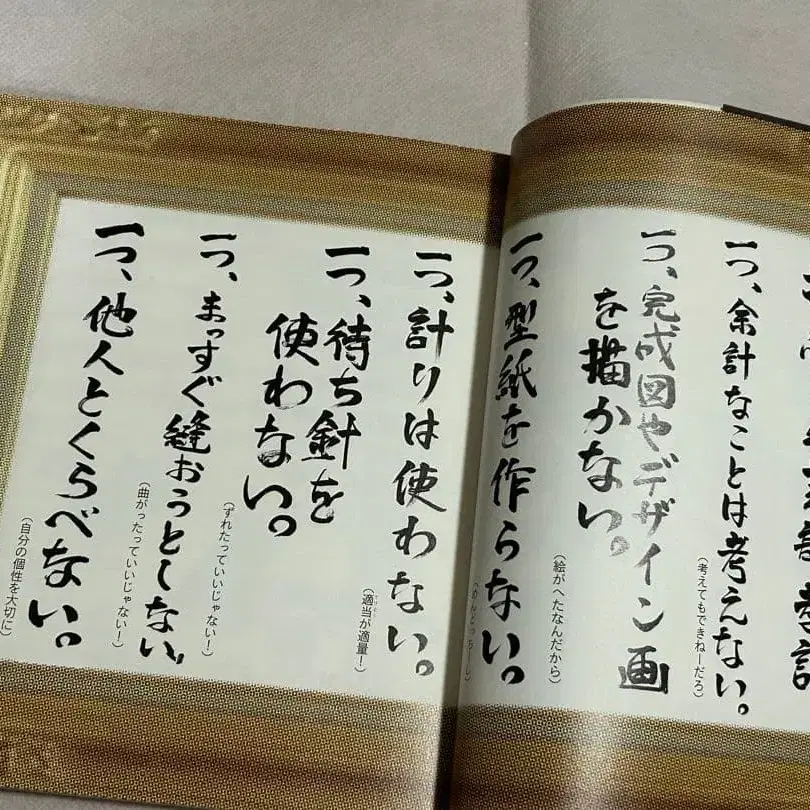 一つ、余計なことは考えない。
(考えてもできねーだろ)
一つ、完成図やデザイン画
を描かない。
(絵がへたなんだから)
一つ、型紙を作らない。
一つ、計りは使わない。
(適当が適量!)
一つ、待ち針を
使わない。
(ずれたっていいじゃない!)
一つ、まっすぐ縫おうとしない。
(曲がったっていいじゃない!)
一つ、他人とくらべない。
(自分の個性を大切に)